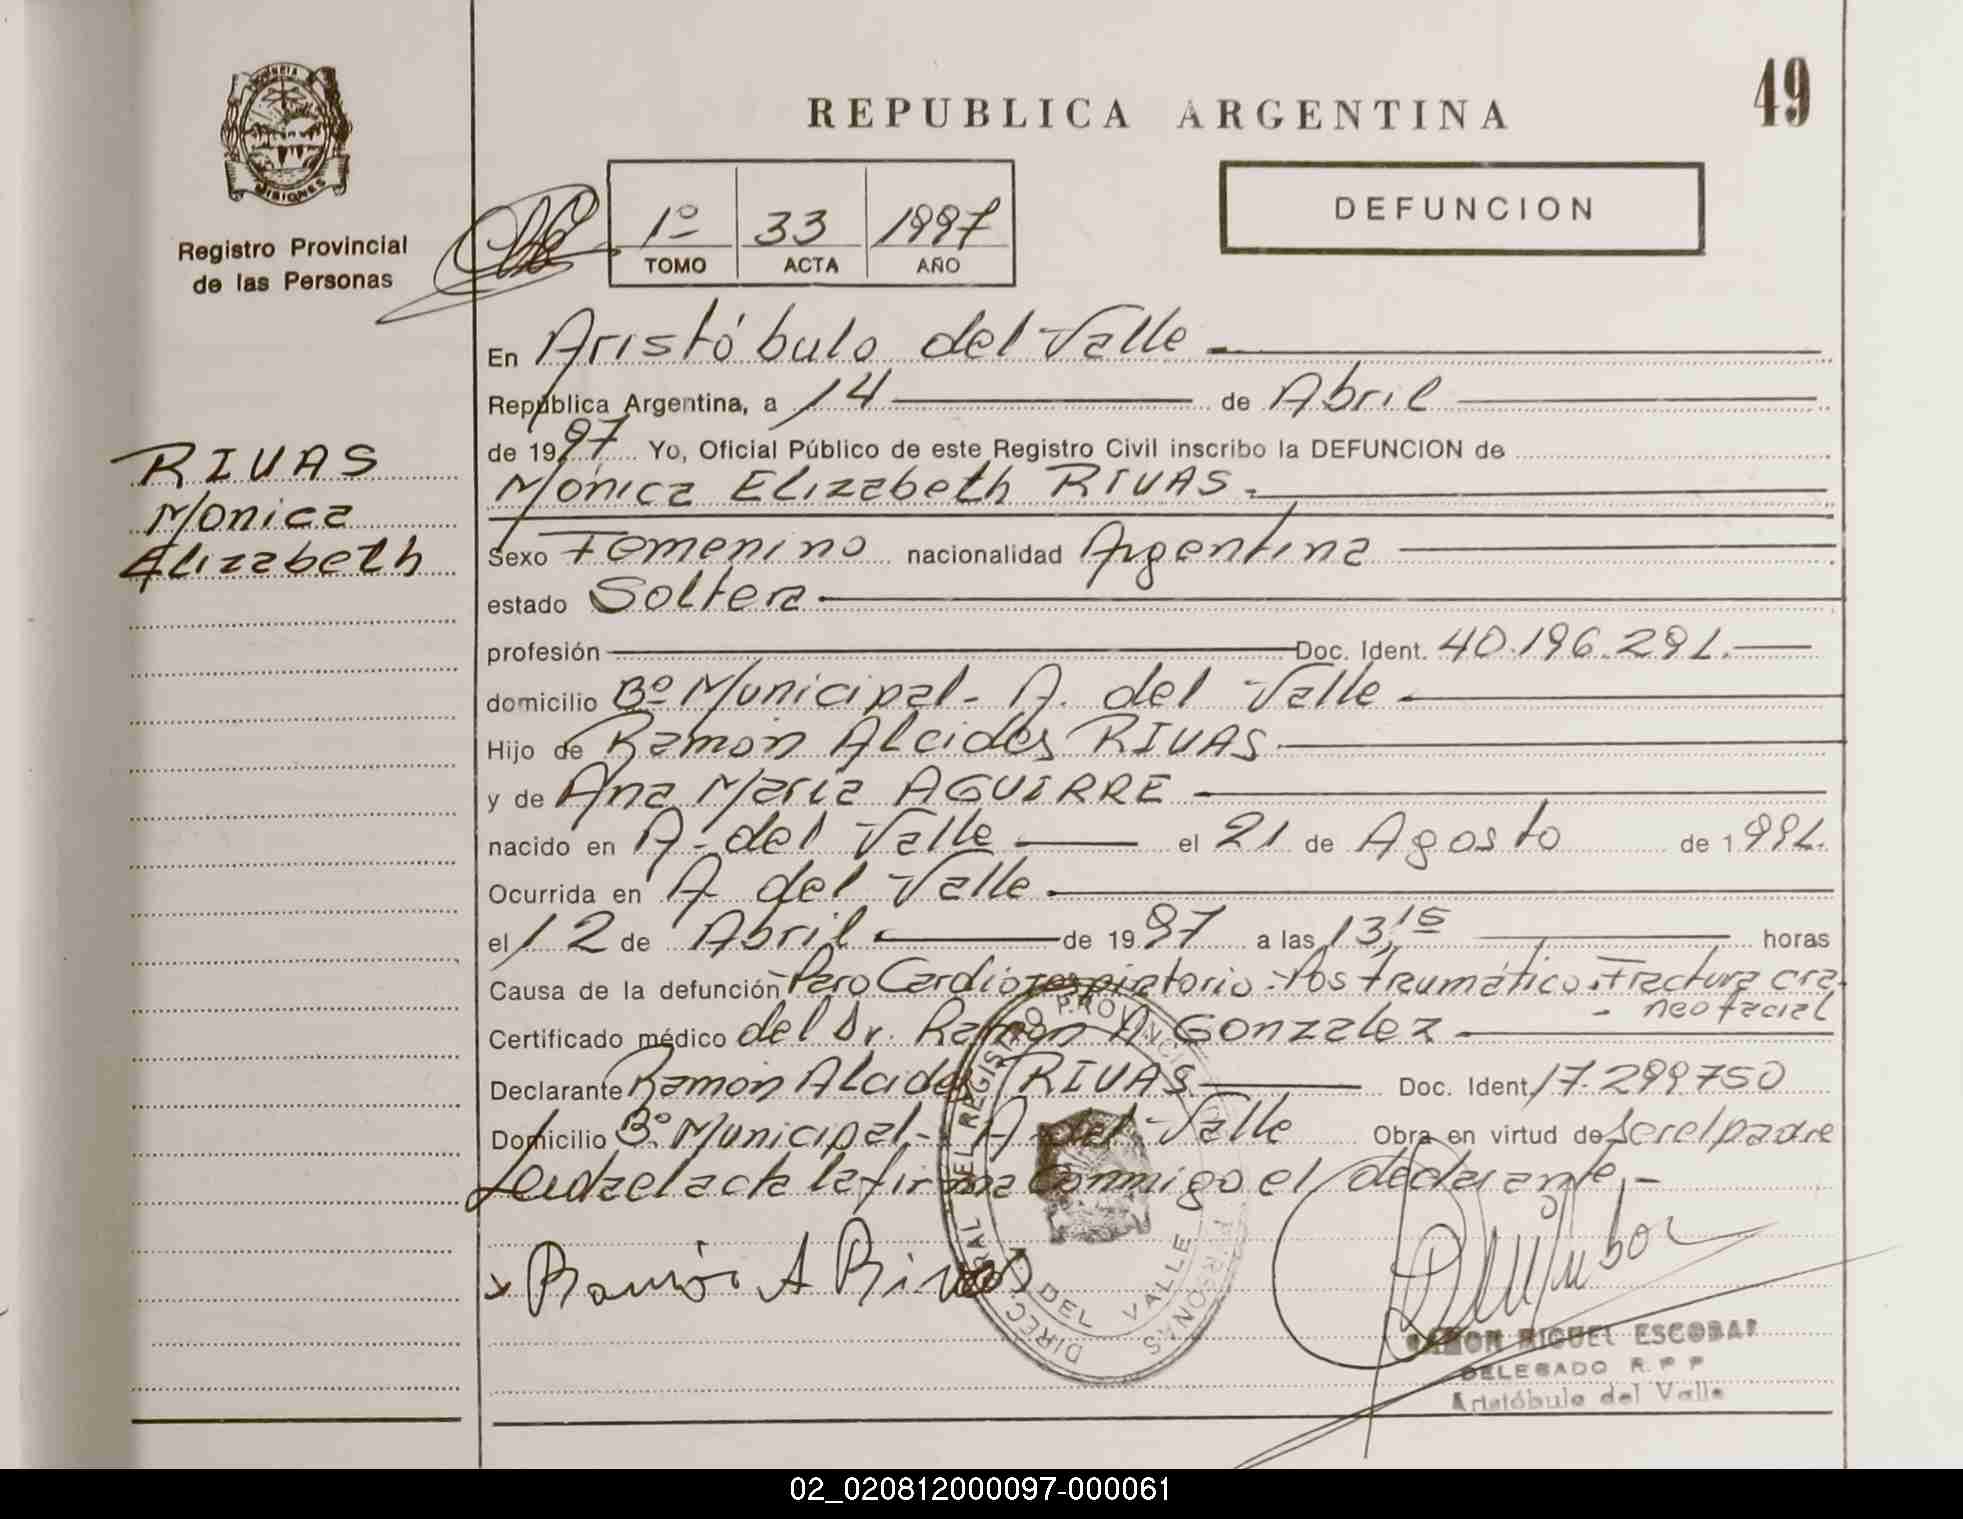 49
REPUBLICA ARGENTINA
PROVINCIA
MISIONES
Registro Provincial
de las Personas
1º 33 1997
TOMO ACTA AÑO
DEFUNCION
RIVAS
Monica
Elizabeth
En Aristóbulo del Valle
República Argentina, a 14 de Abril
de 1997 Yo, Oficial Público de este Registro Civil inscribo la DEFUNCION de
Mónica Elizabeth RIVAS.
Sexo Femenino nacionalidad Argentina
estado Soltera
profesión Doc. Ident. 40.196.291.
domicilio Bº Municipal - A. del Valle
Hijo de Ramón Alcides RIVAS
y de Ana María AGUIRRE
nacido en A. del Valle el 21 de Agosto de 1991.
Ocurrida en A. del Valle
el 12 de Abril de 1997 a las 13,15 horas
Causa de la defunción Paro Cardiorespiratorio - Pos traumático. Fractura cra-
neofacial
Certificado médico del Dr. Ramón A. GONZALEZ
Declarante Ramón Alcides RIVAS Doc. Ident. 17.299750
Domicilio Bº Municipal - A. del Valle Obra en virtud de Ser el padre
Leida el acta la firma Conmigo el declarante. -
Ramón A Rivas
DIRECC. GRAL DEL REGISTRO PROVINCIAL PERSONAS
DEL VALLE
RAMON MIGUEL ESCOBAR
DELEGADO R. P. P
Aristóbulo del Valle
02_020812000097-000061